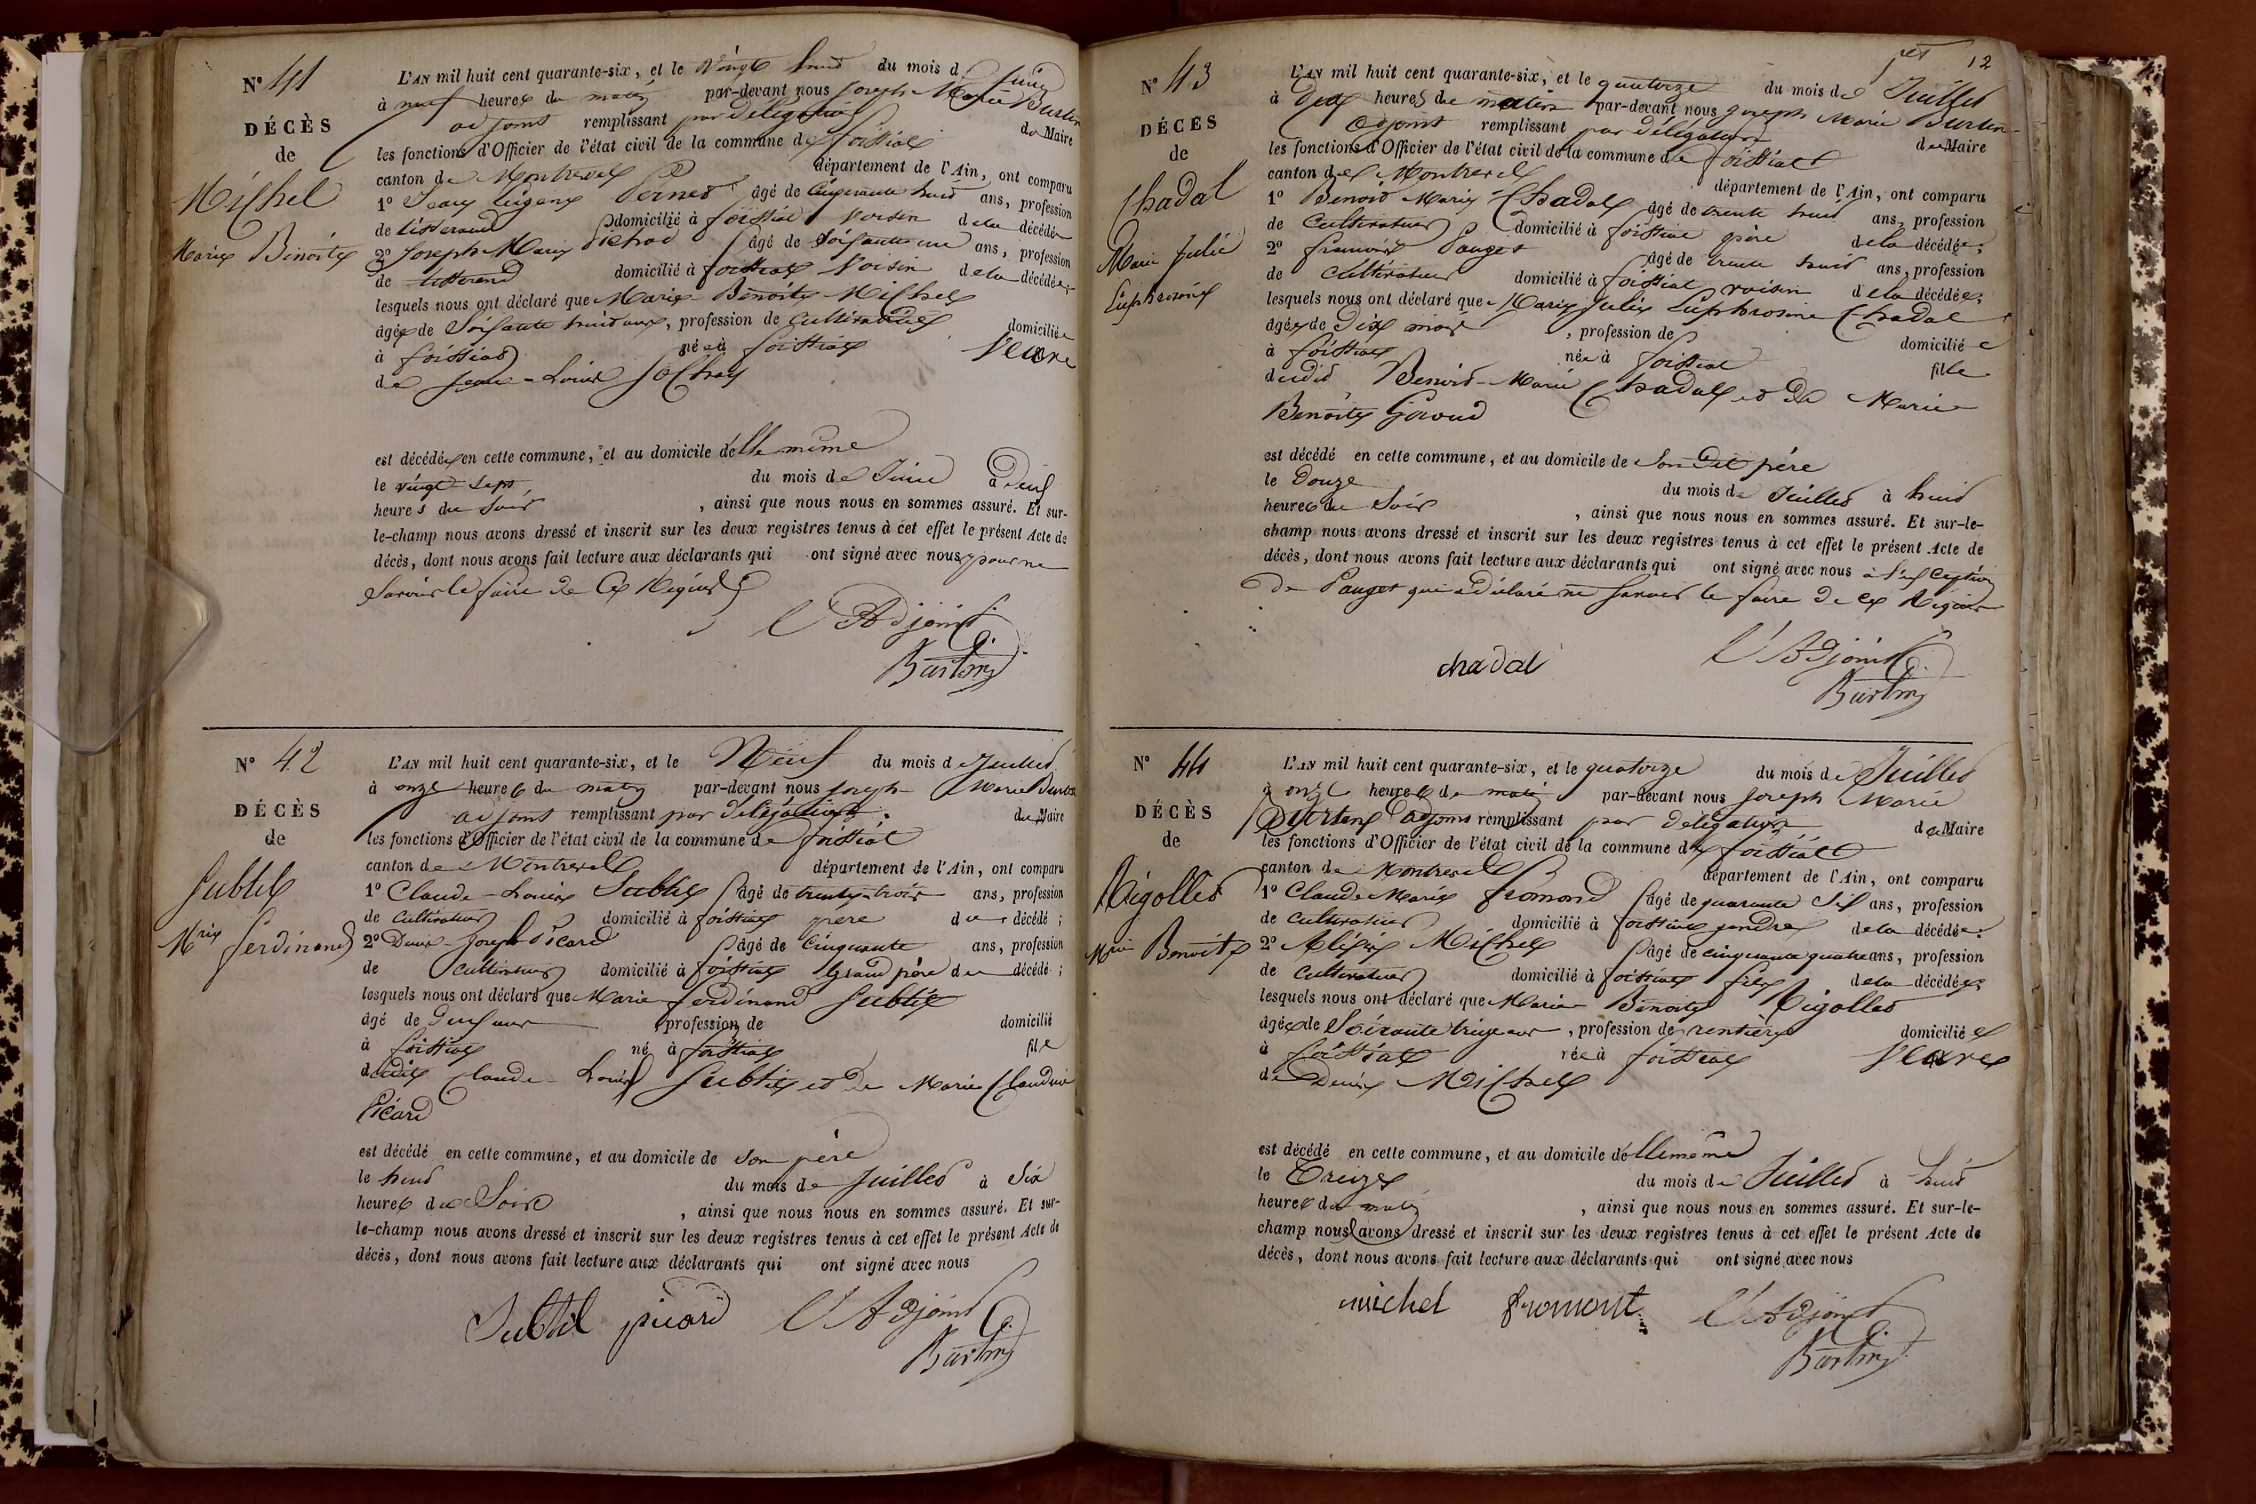 N° 41
DÉCÈS
de
Michel
Marie Benoite
L'AN mil huit cent quarante-six, et le Vingt huit du mois de Juin
à neuf heures du matin par-devant nous Joseph Marie Burtin
adjoint remplissant par délégation du Maire
les fonctions d'Officier de l'état civil de la commune de foissiat
canton de Montrevel département de l'Ain, ont comparu
1° Jean Pernet âgé de Cinquante huit ans, profession
de tisserand domicilié à foissiat voisin de la décédée
2° Joseph Marie Pichod âgé de Soisante un ans, profession
de tisserand domicilié à foissiat Voisin de la décédée
lesquels nous ont déclaré que Marie Benoite Michel
âgée de Soisante huit ans, profession de Cultivatrice domiciliée
à foissiat née à foissiat Veuve
de Jean-Louis Sochay
est décédée en cette commune, et au domicile d'elle même
le vingt sept du mois de Juin à Deux
heures du Soir, ainsi que nous nous en sommes assuré. Et sur-
le-champ nous avons dressé et inscrit sur les deux registres tenus à cet effet le présent Acte de
décès, dont nous avons fait lecture aux déclarants qui ont signé avec nous pour ne
Savoir le faire de Ce Requis
L'Adjoint
Burtin
N° 42
DÉCÈS
de
Subtil
Mrie ferdinand
L'AN mil huit cent quarante-six, et le Neuf du mois de Juillet
à onze heures du matin par-devant nous Joseph Marie Burtin
adjoint remplissant par délégation du Maire
les fonctions d'Officier de l'état civil de la commune de foissiat
canton de Montrevel département de l'Ain, ont comparu
1° Claude-Louis Subtil âgé de trente-trois ans, profession
de Cultivateur domicilié à foissiat père du décédé ;
2° Denis-Joseph Picard âgé de Cinquante ans, profession
de Cultivateur domicilié à foissiat Grand père du décédé ;
lesquels nous ont déclaré que Marie ferdinand Subtil
âgé de Deux ans, profession de domicilié
à foissiat né à foissiat fils
dudit Claude-Louis Subtil et de Marie Claudine
Picard
est décédé en cette commune, et au domicile de Son père
le huit du mois de Juillet à Six
heures du Soir, ainsi que nous nous en sommes assuré. Et sur-
le-champ nous avons dressé et inscrit sur les deux registres tenus à cet effet le présent Acte de
décès, dont nous avons fait lecture aux déclarants qui ont signé avec nous
Subtil picard L'Adjoint
Burtin
12
N° 43
DÉCÈS
de
Chadal
Marie Julie
Euphrosine
L'AN mil huit cent quarante-six, et le quatorze du mois de Juillet
à Dix heures du matin par-devant nous Joseph Marie Burtin
adjoint remplissant par délégation du Maire
les fonctions d'Officier de l'état civil de la commune de foissiat
canton de Montrevel département de l'Ain, ont comparu
1° Benoit Marie Chadal âgé de trente huit ans, profession
de Cultivateur domicilié à foissiat père de la décédée ;
2° françois Pauget âgé de trente huit ans, profession
de Cultivateur domicilié à foissiat voisin de la décédée ;
lesquels nous ont déclaré que Marie Julie Euphrosine Chadal
âgée de Dix mois, profession de domiciliée
à foissiat née à foissiat fille
dudit Benoit-Marie Chadal et de Marie
Benoite Giroud
est décédé en cette commune, et au domicile de Son dit père
le Douze du mois de Juillet à huit
heures du Soir, ainsi que nous nous en sommes assuré. Et sur-le-
champ nous avons dressé et inscrit sur les deux registres tenus à cet effet le présent Acte de
décès, dont nous avons fait lecture aux déclarants qui ont signé avec nous à l'exception
de Pauget qui a déclaré ne Savoir le faire de Ce Requis
chadal L'Adjoint
Burtin
N° 44
DÉCÈS
de
Rigollet
Mrie Benoite
L'AN mil huit cent quarante-six, et le quatorze du mois de Juillet
à onze heures du matin par-devant nous Joseph Marie
Burtin adjoint remplissant par délégation du Maire
les fonctions d'Officier de l'état civil de la commune de foissiat
canton de Montrevel département de l'Ain, ont comparu
1° Claude Marie fromond âgé de quarante Six ans, profession
de Cultivateur domicilié à foissiat gendre de la décédée
2° Aléxis Michel âgé de cinquante quatre ans, profession
de Cultivateur domicilié à foissiat fils de la décédée ;
lesquels nous ont déclaré que Marie Benoite Rigollet
âgée de Soixante treize ans, profession de rentière domiciliée
à foissiat née à foissiat Veuve
de Denis Michel
est décédé en cette commune, et au domicile d'elle même
le Treize du mois de Juillet à huit
heures du matin, ainsi que nous nous en sommes assuré. Et sur-le-
champ nous avons dressé et inscrit sur les deux registres tenus à cet effet le présent Acte de
décès, dont nous avons fait lecture aux déclarants qui ont signé avec nous
michel fromont L'Adjoint
Burtin